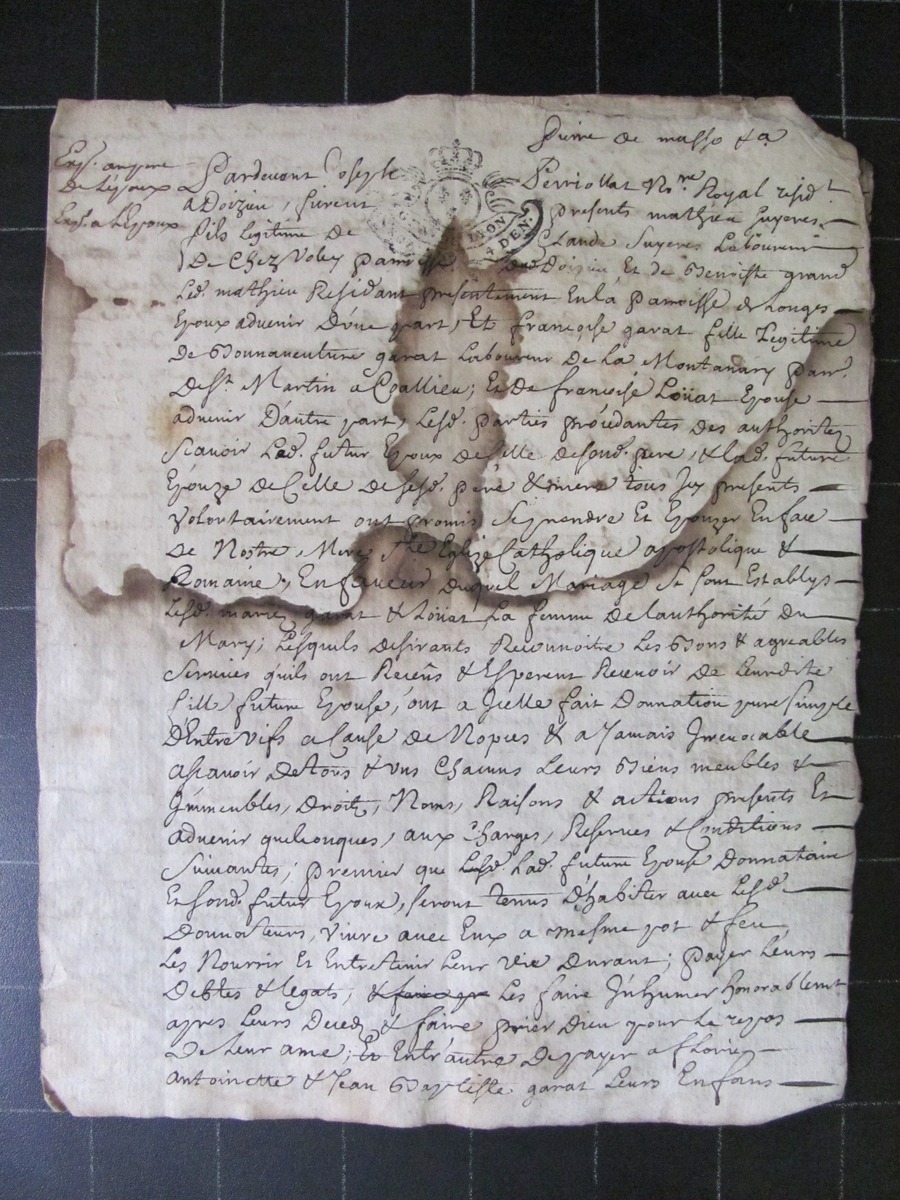 Pierre de masso &a
Exp. au pere
de L'Epoux
Exp. a L'Epoux
Pardevant Joseph Perriollat No.re Royal resid.t
a Doizieu, furent presents mathieu Suyeres
fils legitime de Claude Suyeres Laboureur
De Chez Voley parroisse Dud. Doizieu Et de Benoiste grand
Led. mathieu Residant presentement En la parroisse de Longes
Epoux advenir D'une part, Et francoise garat fille Legitime
De Bonnaventure garat Laboureur De La Montanary parr.
De St. Martin a Coallieu; Et De francoise Loüat Epouse
advenir D'autre part, Lesd. parties procedantes Des authorites
Scavoir Led. futur Epoux De Celle de sond. pere, & lad. future
Epouze De Celle De sesd. pere & mere tous Icy presents
Volontairement ont promis Se prendre Et Epouzer En face
De Nostre Mere Ste Eglize Catholique apostolique &
Romaine, En faveur duquel Mariage Se sont Establys
Lesd. marié garat & Loüat La femme De l'authorité Du
Mary; Lesquels desirants Reconnoitre Les Bons & agreables
Services qu'ils ont Receûs & Esperent Recevoir De leurdite
fille future Epouse, ont a Jcelle fait Donnation pure simple
D'Entre vifs a Cause de Nopces & a Jamais Irrevocable
ascavoir De tous & uns Chacuns Leurs Biens meubles &
Immeubles, Droits, Noms, Raisons & actions presents Et
advenir quelconques, aux Charges, Reserves & Conditions
Suivantes; premier que Lesd. Lad. future Epouse Donnataire
Et sond. futur Epoux, seront tenus D'habiter avec Lesd.
Donnateurs, Vivre avec Eux a mesme pot & feu,
Les Nourrir Et Entretenir Leur Vie Durant; payer Leurs
Debtes & legats, & Les faire Inhumer honorablement
apres Leurs Deced & faire prier Dieu pour Le repos
De Leur ame; Et Entr'autre De payer a
Antoinette & Jean Baptiste garat Leurs Enfans